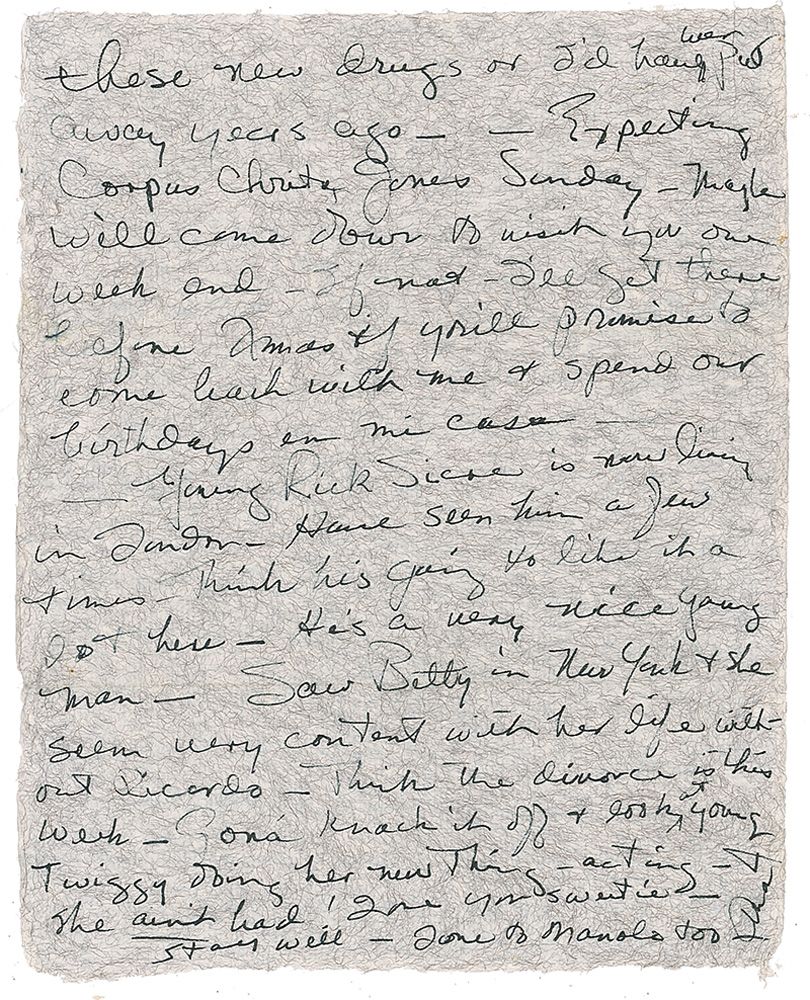 these new drugs or I'd have
away years ago — — Expecting
Corpus Christi Jones Sunday — Maybe
we'll come down to visit you one
week end — If not — I'll get there
before Xmas if you'll promise to
come back with me & spend our
birthdays en mi casa —
— Young Rick Sicre is now living
in London — Have seen him a few
times — Think his going to like it a
lot here — He's a very nice young
man — Saw Betty in New York & she
seem very content with her life with-
out Ricardo — Think the divorce is this
week — Gona knock it off & look at young
Twiggy doing her new Thing — acting — &
she ain't bad! Love you sweetie —
Stay well — Love to Manolo too —